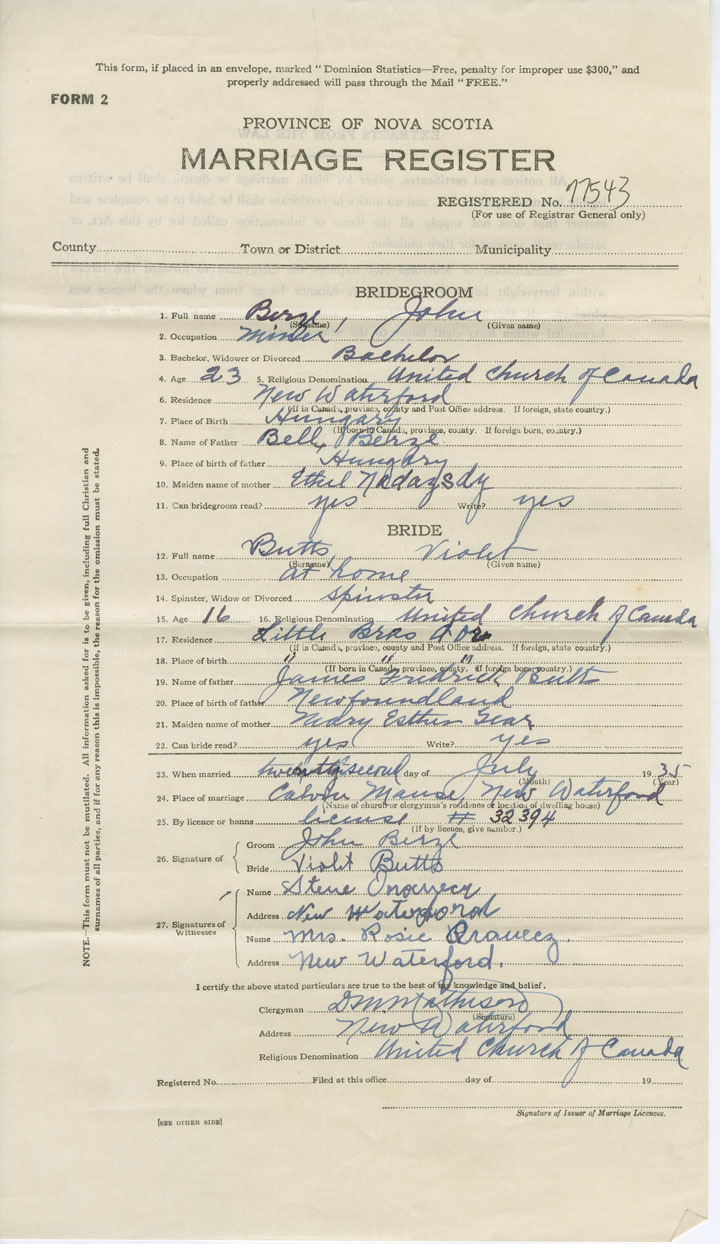 This form, if placed in an envelope, marked "Dominion Statistics—Free, penalty for improper use $300," and
properly addressed will pass through the Mail "FREE."
FORM 2
PROVINCE OF NOVA SCOTIA
MARRIAGE REGISTER
REGISTERED No. 77543
(For use of Registrar General only)
County Town or District Municipality
BRIDEGROOM
1. Full name Berze, John
(Surname) (Given name)
2. Occupation Miner
3. Bachelor, Widower or Divorced Bachelor
4. Age 23 5. Religious Denomination United Church of Canada
6. Residence New Waterford
(If in Canada, province, county and Post Office address. If foreign, state country.)
7. Place of Birth Hungary
(If born in Canada, province, county. If foreign born, country.)
8. Name of Father Bell, Berze
9. Place of birth of father Hungary
10. Maiden name of mother Ethel Nadazsdy
11. Can bridegroom read? yes Write? yes
BRIDE
12. Full name Butts Violet
(Surname) (Given name)
13. Occupation at home
14. Spinster, Widow or Divorced Spinster
15. Age 16 16. Religious Denomination United Church of Canada
17. Residence Little Bras d'Or
(If in Canada, province, county and Post Office address. If foreign, state country.)
18. Place of birth " " "
(If born in Canada, province, county. If foreign born, country.)
19. Name of father James Fredrick Butts
20. Place of birth of father Newfoundland
21. Maiden name of mother Mary Esther Gear
22. Can bride read? yes Write? yes
23. When married day of July 1935
(Month) (Year)
24. Place of marriage Calvin Manse, New Waterford
(Name of church or clergyman's residence or location of dwelling house)
25. By licence or banns license # 32394
(If by licence, give number.)
26. Signature of Groom John Berze
Bride Violet Butts
27. Signatures of Witnesses Name Steve
Address New Waterford
Name Mrs. Rosie Pravecz.
Address New Waterford.
I certify the above stated particulars are true to the best of my knowledge and belief.
Clergyman D M Mathison
(Signature)
Address New Waterford
Religious Denomination United Church of Canada
Registered No. Filed at this office day of 19
Signature of Issuer of Marriage Licences.
[SEE OTHER SIDE]
NOTE.—This form must not be mutilated. All information asked for is to be given, including full Christian and
surnames of all parties, and if for any reason this is impossible, the reason for the omission must be stated.